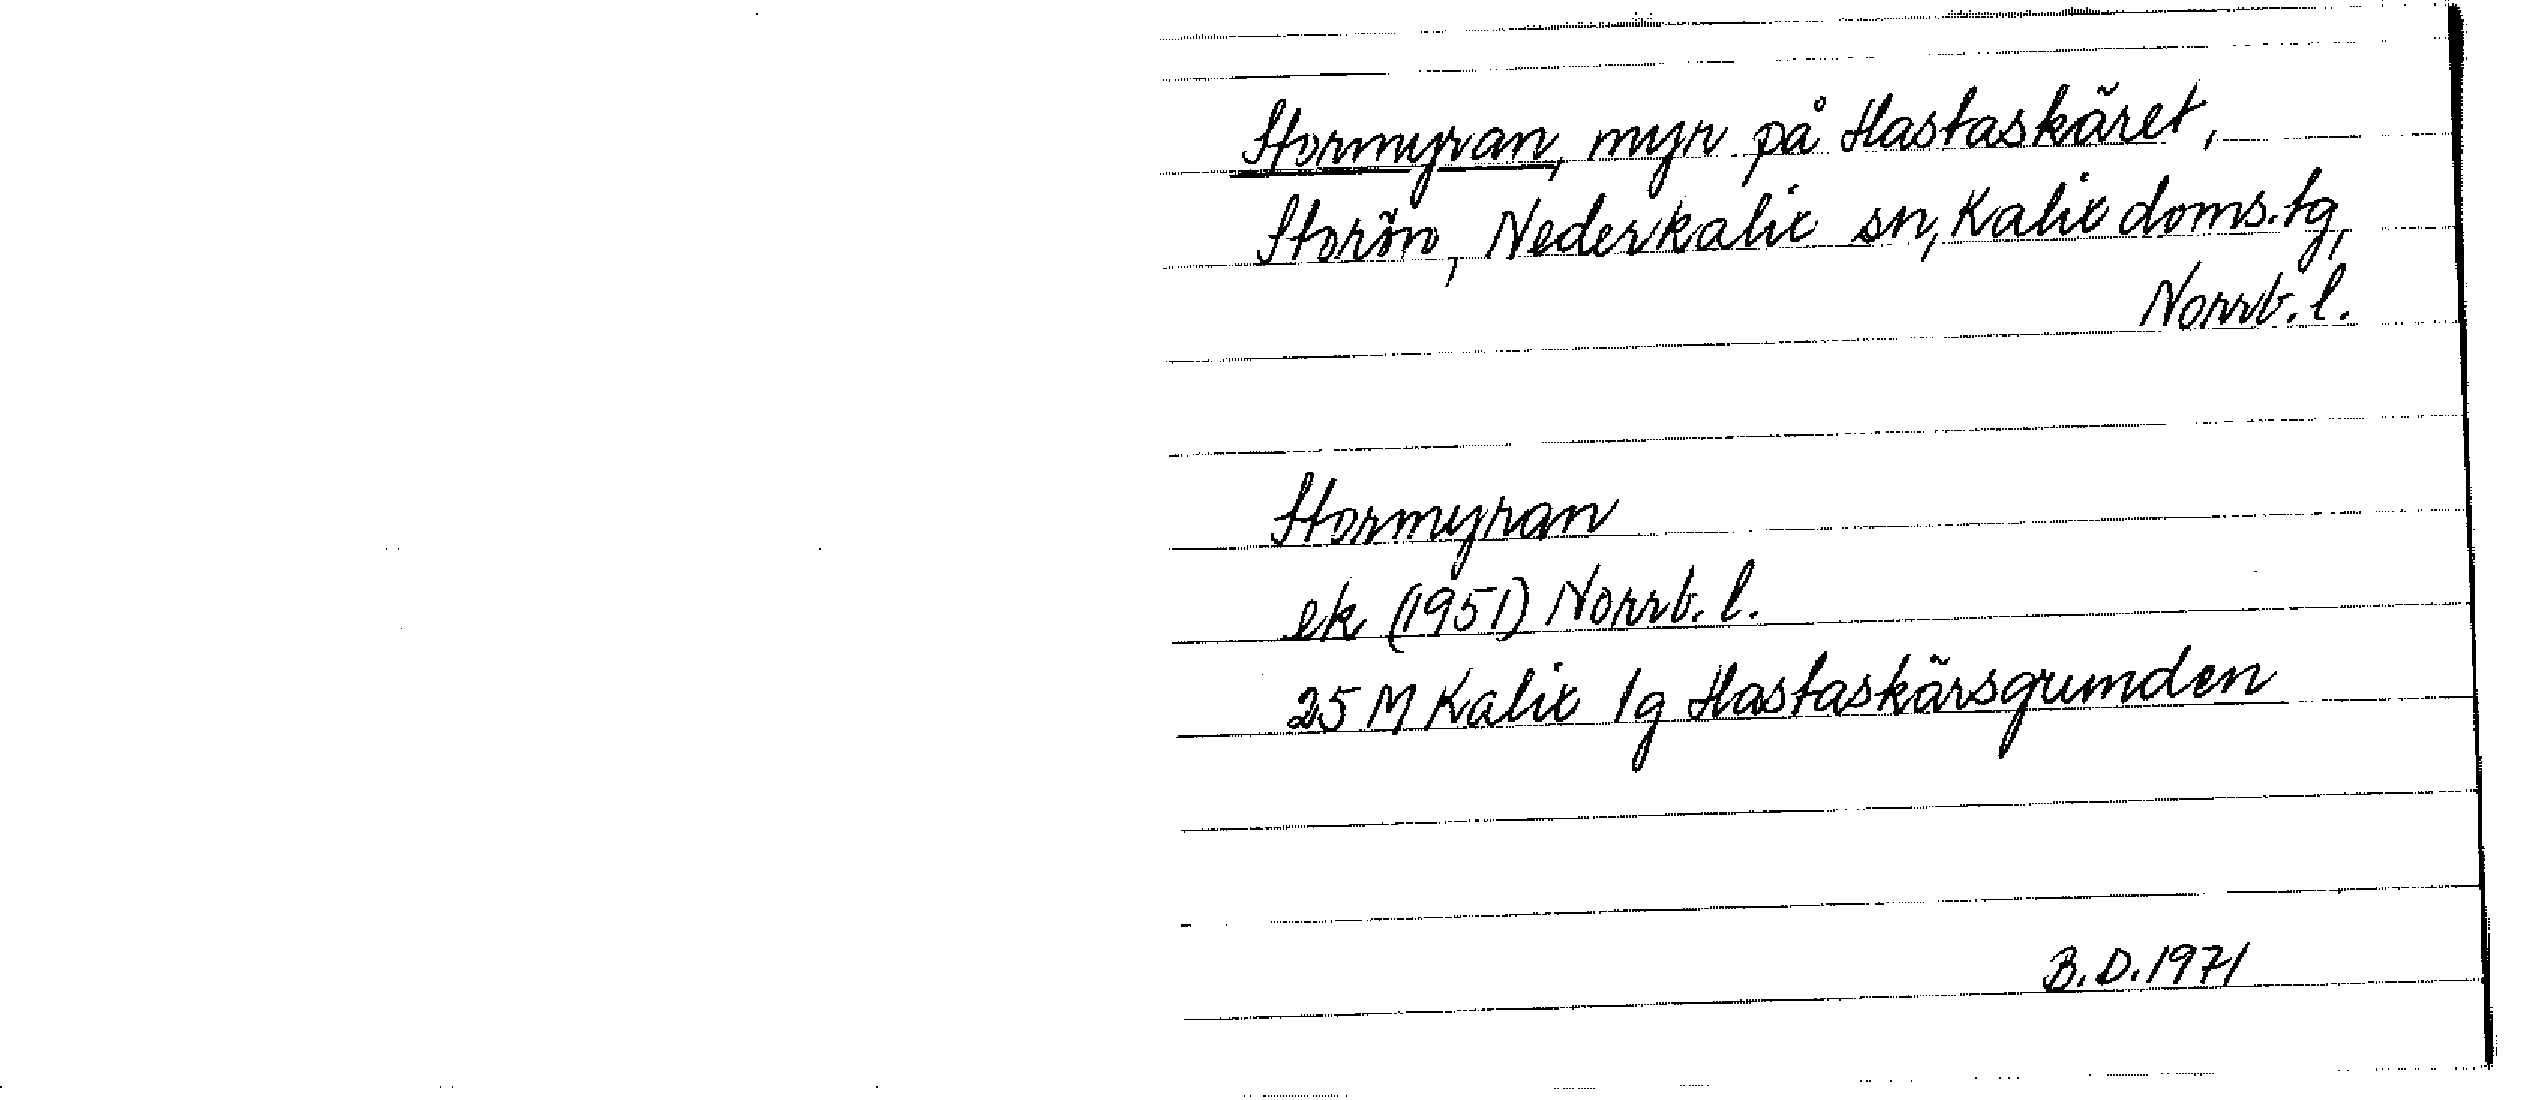 Stormyran, myr på Hastaskäret,
Storön, Nederkalix sn, Kalix doms.tg,
Norrb.l.
Stormyran
ek (1951) Norrb.l.
25 M Kalix 1g Hastaskärsgrunden
B.D.1971